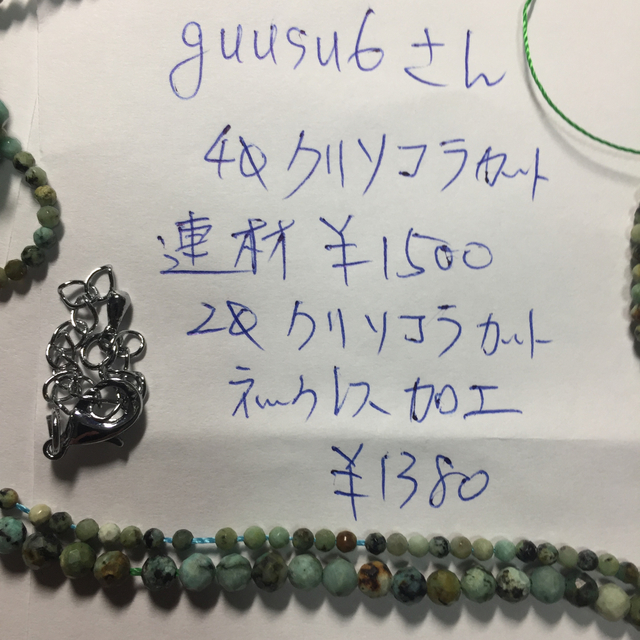 guusu6さん
4φクリソコラカット
連材 ¥1500
2φクリソコラカット
ネックレス加工
¥1380